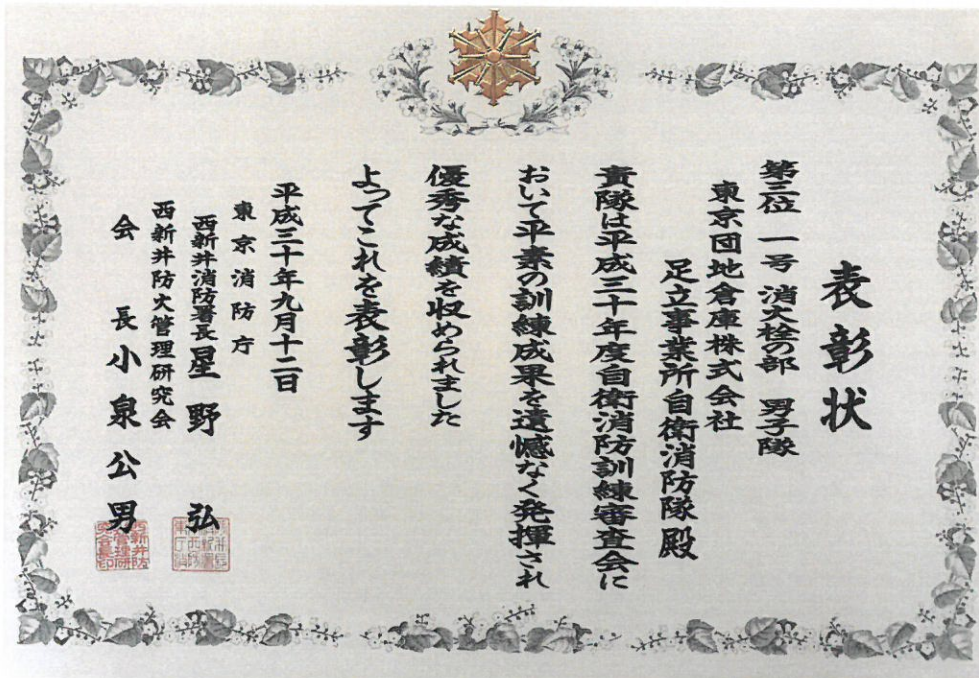 表彰状
第三位 一号消火栓の部 男子隊
東京団地倉庫株式会社
足立事業所自衛消防隊殿
貴隊は平成三十年度自衛消防訓練審査会に
おいて平素の訓練成果を遺憾なく発揮され
優秀な成績を収められました
よってこれを表彰します
平成三十年九月十二日
東京消防庁
西新井消防署長 星野 弘
西新井防火管理研究会
会長 小泉公男